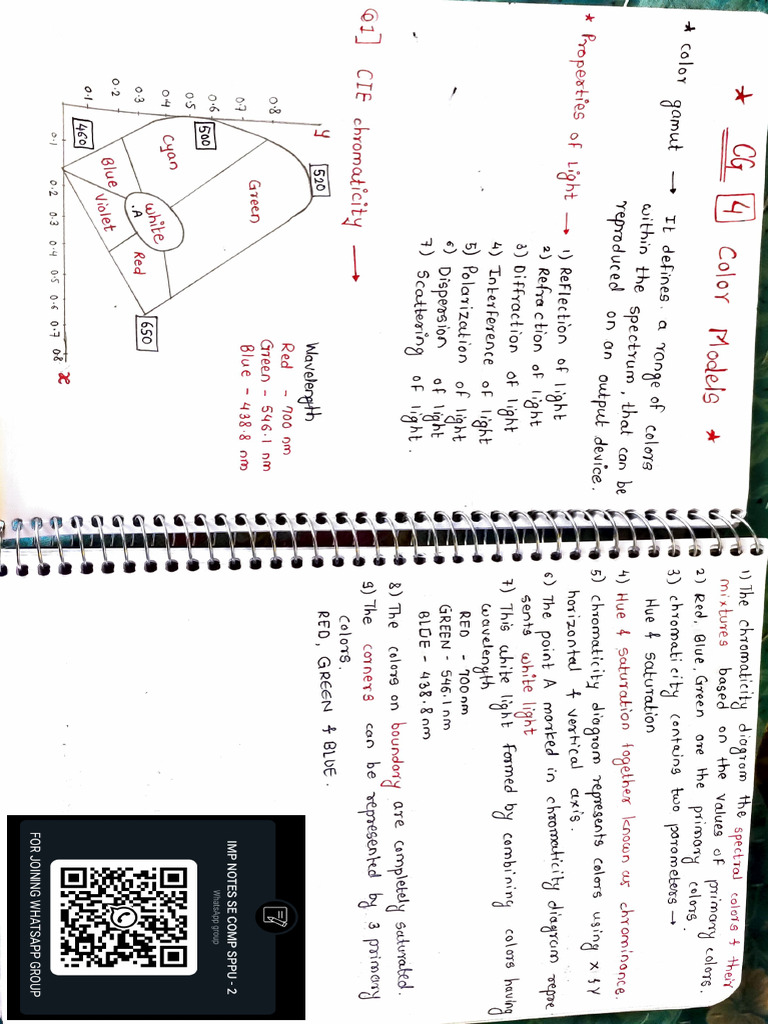 * CG 4 Color Models *
* color gamut → It defines a range of colors
within the spectrum, that can be
reproduced on an output device.
* Properties of Light → 1) Reflection of light
2) Refraction of light
3) Diffraction of light
4) Interference of light
5) Polarization of light
6) Dispersion of light
7) Scattering of light.
Q1] CIE chromaticity →
y
0.8
0.7
0.6
0.5
0.4
0.3
0.2
0.1
520
500
460
650
Green
Cyan
White
.A
Blue
Violet
Red
0.1 0.2 0.3 0.4 0.5 0.6 0.7 0.8 x
Wavelength
Red - 700 nm
Green - 546.1 nm
Blue - 438.8 nm
1) The chromaticity diagram the spectral colors & their
mixtures based on the values of primary colors.
2) Red, Blue, Green are the primary colors.
3) chromaticity contains two parameters →
Hue & saturation
4) Hue & saturation together known as chrominance.
5) chromaticity diagram represents colors using x & y
horizontal & vertical axis.
6) The point A marked in chromaticity diagram repre-
sents white light
7) This white light formed by combining colors having
wavelength
RED - 700nm
GREEN - 546.1nm
BLUE - 438.8nm
8) The colors on boundary are completely saturated.
9) The corners can be represented by 3 primary
colors.
RED, GREEN & BLUE.
IMP NOTES SE COMP SPPU - 2
WhatsApp group
FOR JOINING WHATSAPP GROUP